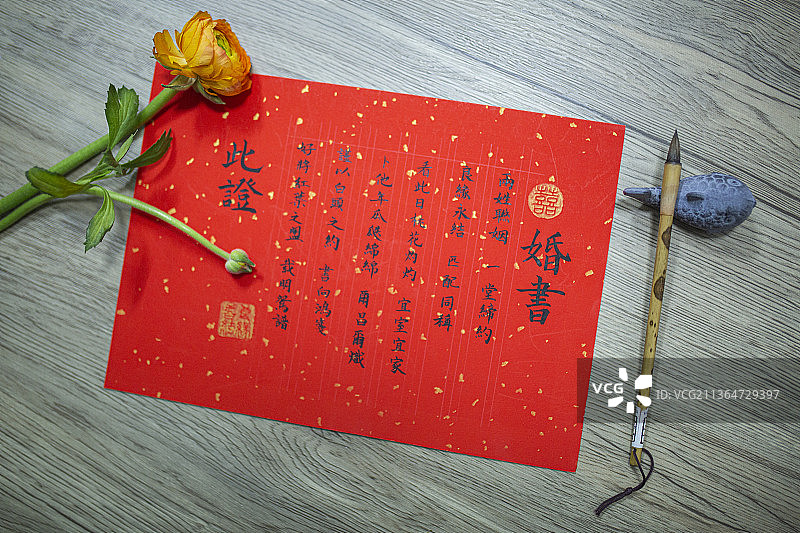 婚書
囍
兩姓聯姻 一堂締約
良緣永結 匹配同稱
看此日桃花灼灼 宜室宜家
卜他年瓜瓞綿綿 爾昌爾熾
謹以白頭之約 書向鴻箋
好將紅葉之盟 載明鴛譜
此證
VCG
VCG.COM
VCG211364729397